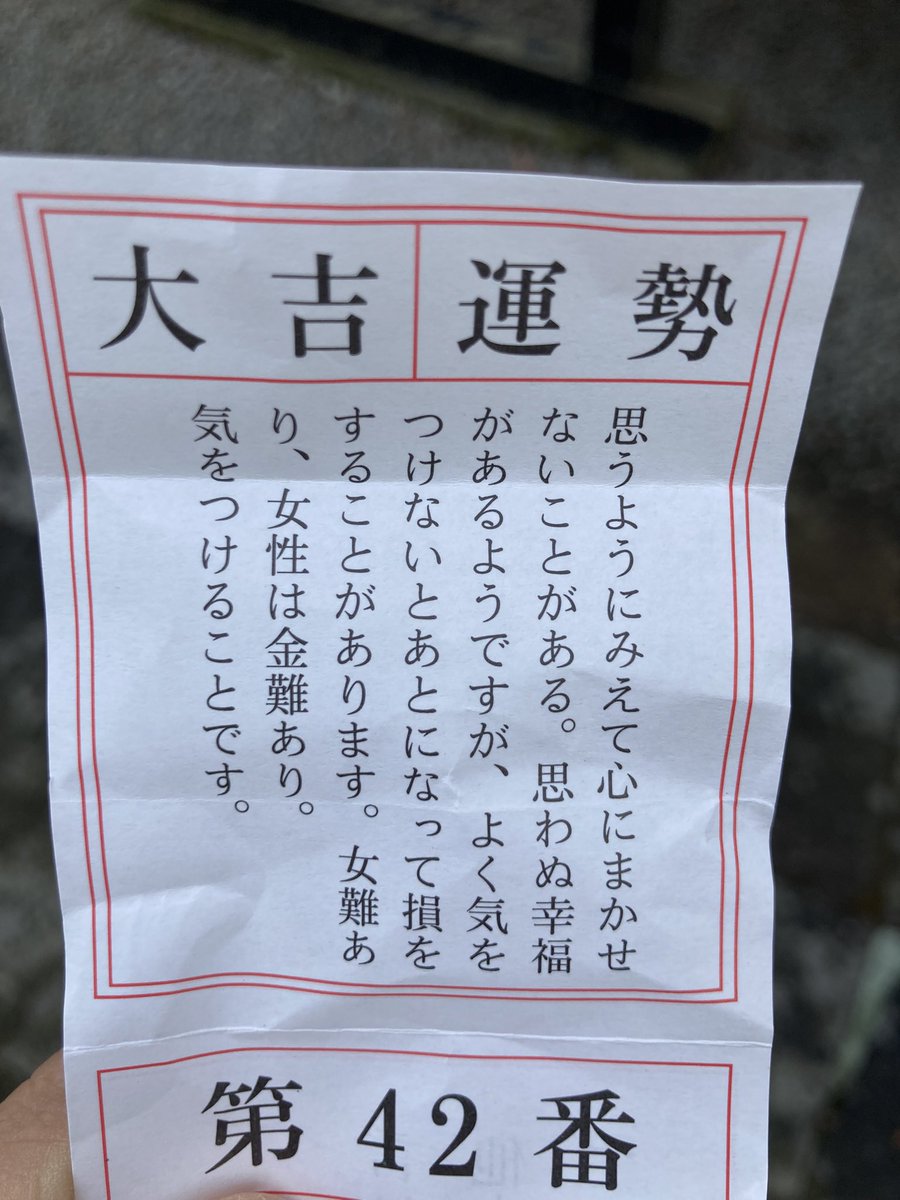 大吉 運勢
思うようにみえて心にまかせ
ないことがある。思わぬ幸福
があるようですが、よく気を
つけないとあとになって損を
することがあります。女難あ
り、女性は金難あり。
気をつけることです。
第42番